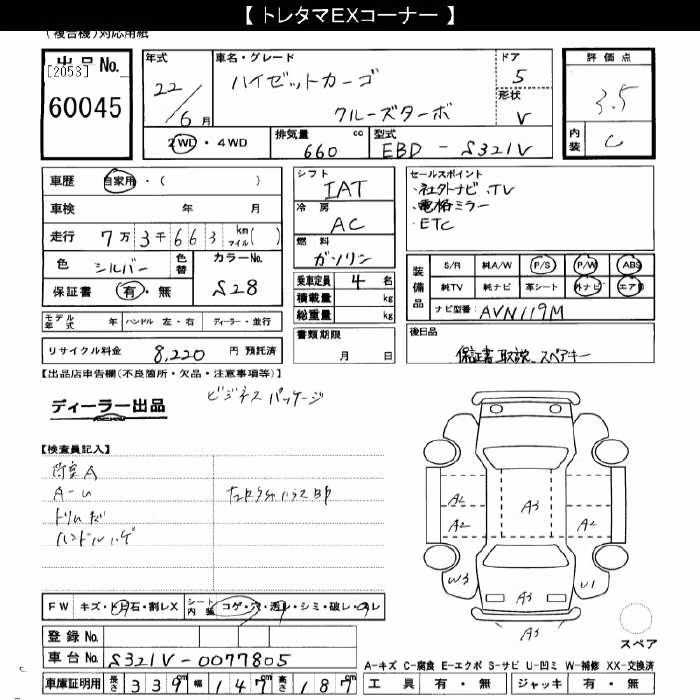 【 トレタマEXコーナー 】
(複合機)対応用紙
出品No.
[2053]
60045
年式 22/6月
車名・グレード
ハイゼットカーゴ
クルーズターボ
ドア 5
形状 V
評価点
3.5
内装 C
2WD・4WD
排気量 660 cc
型式 EBD-S321V
車歴 自家用・( )
車検 年 月
走行 7万3千663 km マイル( )
色 シルバー 色替 カラーNo. S28
保証書 有・無
シフト IAT
冷房 AC
燃料 ガソリン
乗車定員 4 名
積載量 kg
総重量 kg
セールスポイント
・社外ナビ、TV
・電格ミラー
・ETC
装備品
S/R 純A/W P/S P/W ABS
純TV 純ナビ 革シート 外ナビ エアB
ナビ型番 AVN119M
モデル年式 年 ハンドル 左・右 ディーラー・並行
リサイクル料金 8,220 円 預託済
書類期限 月 日
後日品
保証書 取説 スペアキー
【出品店申告欄(不良箇所・欠品・注意事項等)】
ディーラー出品
ビジネス パッケージ
【検査員記入】
荷室A
A-U
ハンドルハゲ
A2 A3 A2
A2
W3 U1
A3
FW キズ・トビ石・割レX シート内装 コゲ・穴・汚レ・シミ・破レ・スレ
スペア
登録No.
車台No. S321V-0077805
A-キズ C-腐食 E-エクボ S-サビ U-凹ミ W-補修 XX-交換済
車庫証明用 長さ 339cm 幅 147cm 高さ 187cm
工具 有・無 ジャッキ 有・無